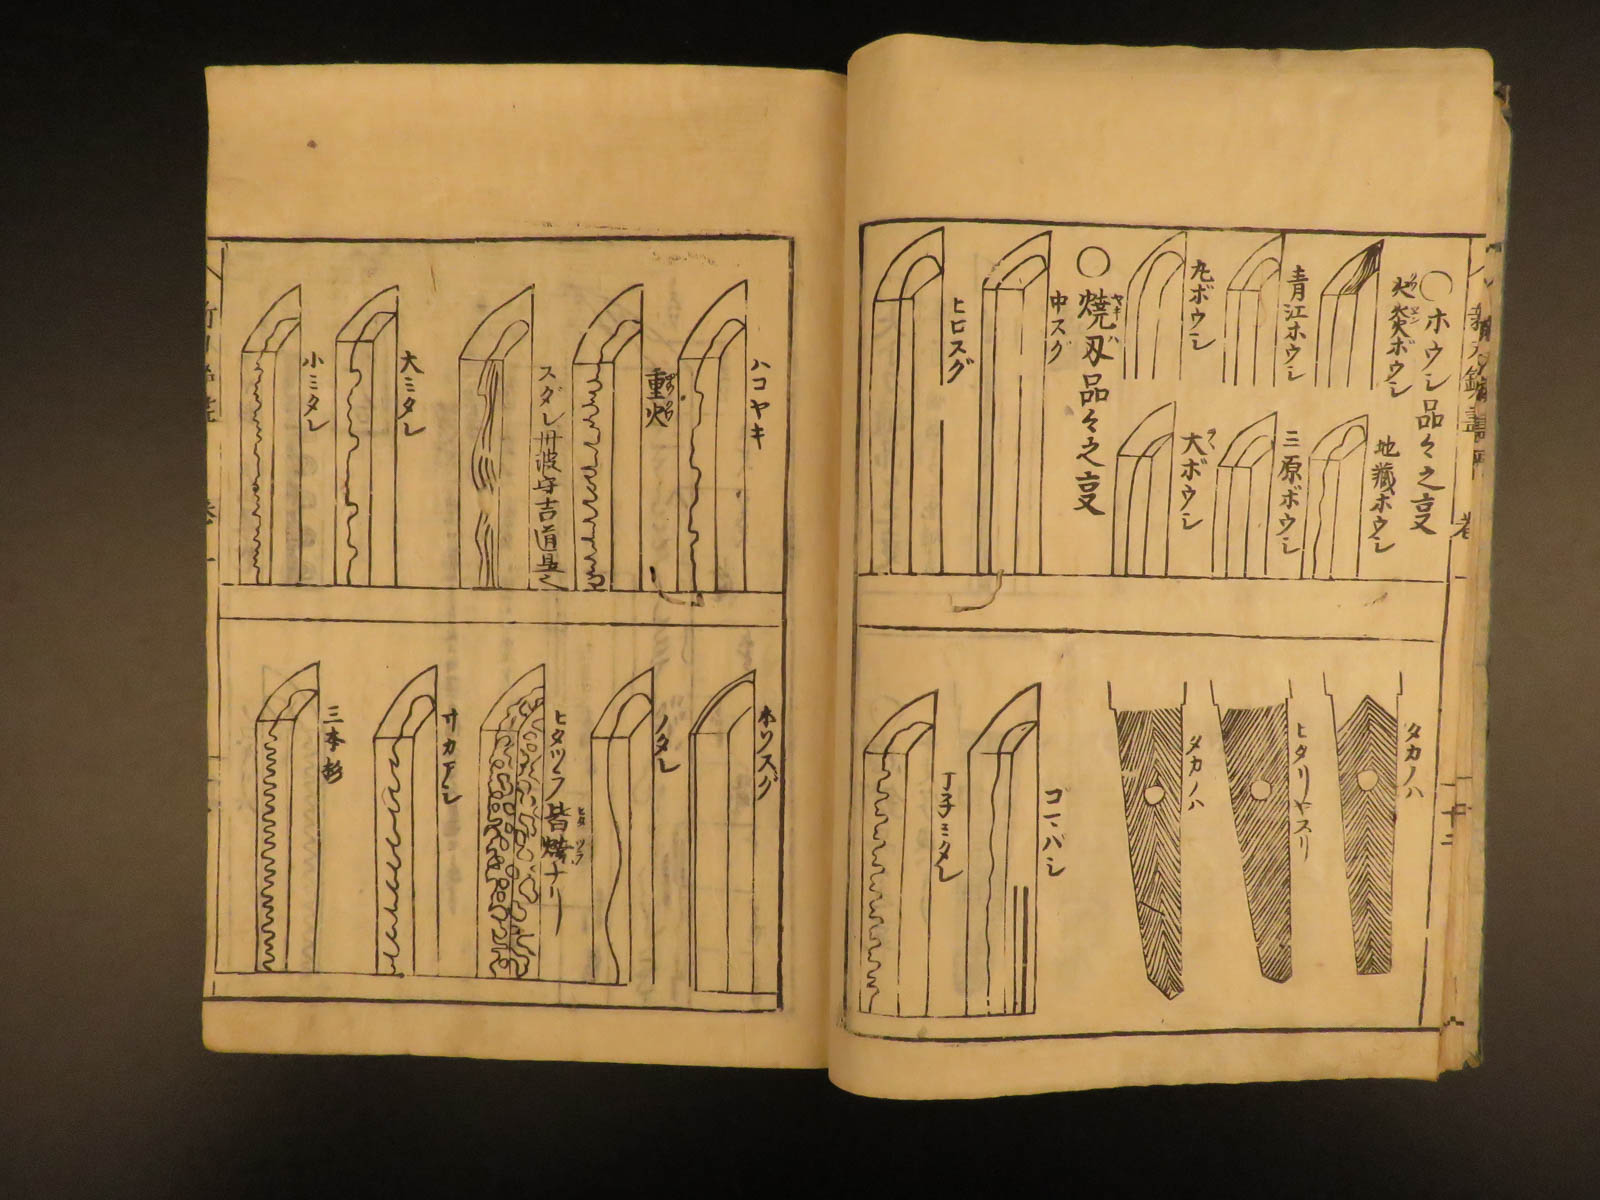 ○ホウシ品々之変
火焚ボウシ
青江ホウシ
丸ボウシ
地蔵ホウシ
三原ボウシ
大ボウシ
○焼刃品々之変
ヤキ
中スグ
ヒロスグ
タカノハ
ヒタリヤスリ
タカノハ
丁子ミタレ
ハコヤキ
重火
スダレ丹波守吉道是之
大ミタレ
小ミタレ
本ソスグ
ノタレ
ヒタツラ皆焼ナリ
サカアシ
三本杉